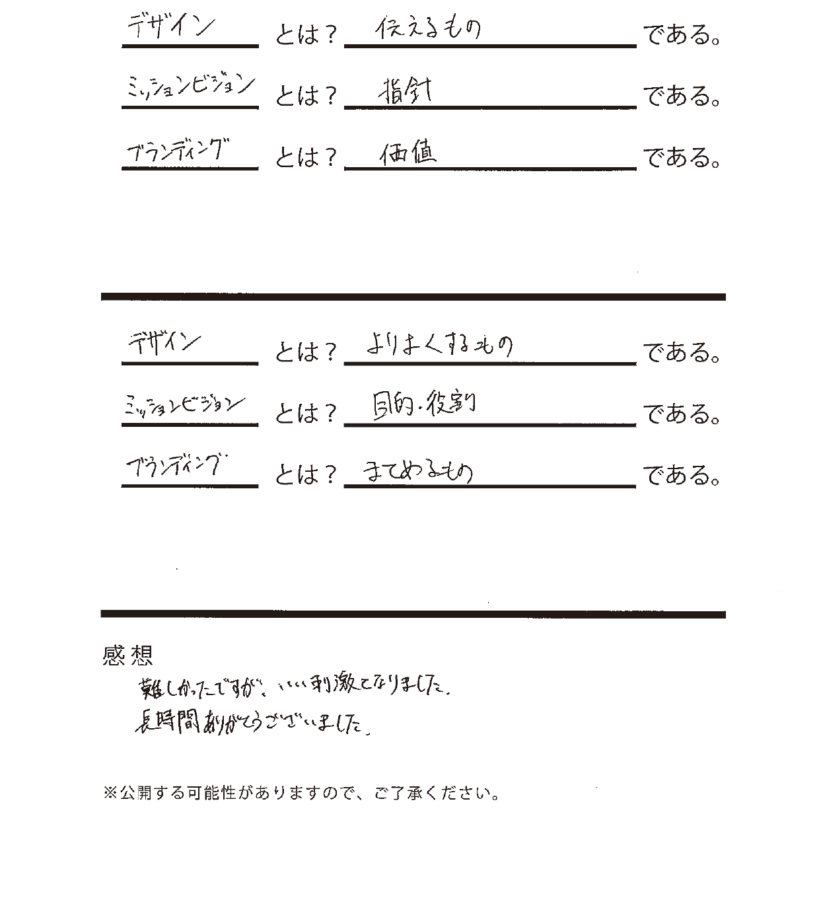 デザイン とは? 伝えるもの である。
ミッションビジョン とは? 指針 である。
ブランディング とは? 価値 である。
デザイン とは? よりよくするもの である。
ミッションビジョン とは? 目的・役割 である。
ブランディング とは? まとめるもの である。
感想
難しかったですが、いい刺激となりました.
長時間ありがとうございました.
※公開する可能性がありますので、ご了承ください。